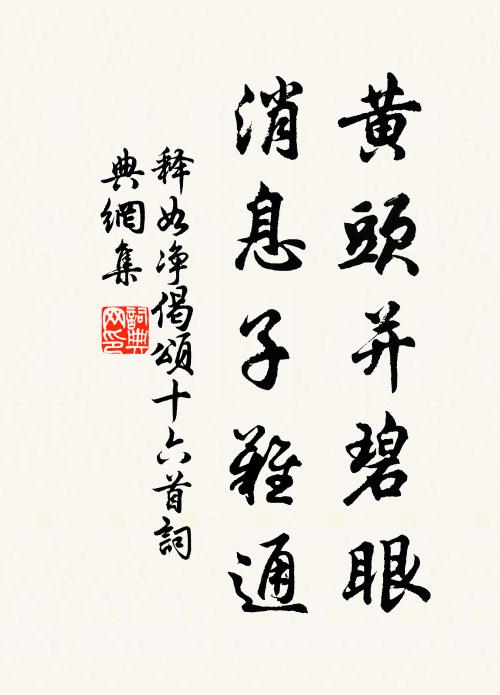 黄頭并碧眼
消息子難通
释如净偈頌十六首詞
典網集
詞典
网印